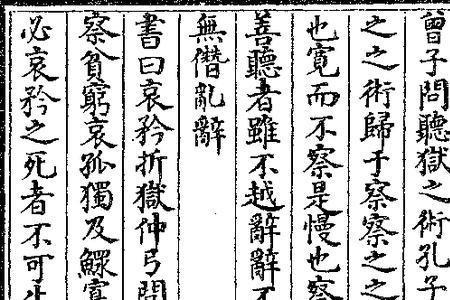 曾子問聽獄之術孔子
之之術歸于察察之之
也寬而不察是慢也察
善聽者雖不越辭辭不
無僭亂辭
書曰哀矜折獄仲弓問
察貧窮哀孤獨及鰥寡
必哀矜之死者不可生